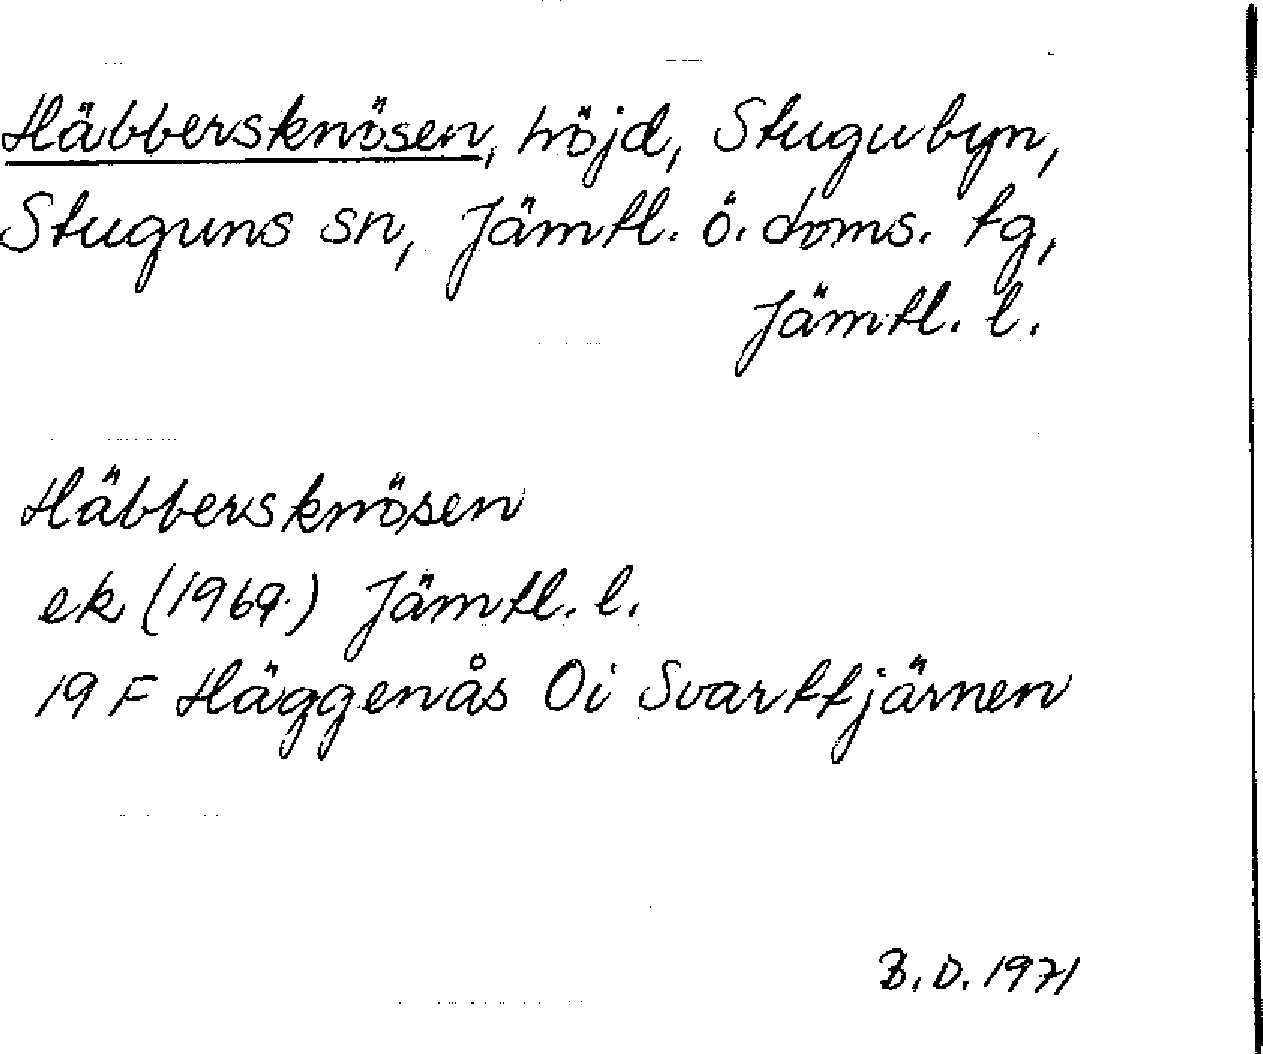 Häbbersknösen, höjd, Stugubyn,
Stuguns sn, Jämtl. ö. doms. tg,
Jämtl. l.
Häbbersknösen
ek (1969) Jämtl. l.
19 F Häggenås Oi Svarttjärnen
B.D. 1971